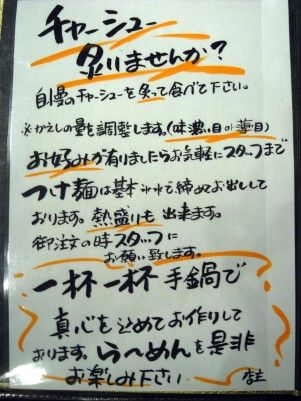 チャーシュー
炙りませんか?
自慢のチャーシューを炙って食べて下さい。
※かえしの量を調整します。(味濃い目の薄目)
お好みが有りましたらお気軽にスタッフまで
つけ麺は基本冷水で締めてお出しして
おります。熱盛りも出来ます。
御注文の時スタッフに
お願い致します。
一杯一杯手鍋で
真心を込めてお作りして
おります。らーめんを是非
お楽しみ下さい
店主